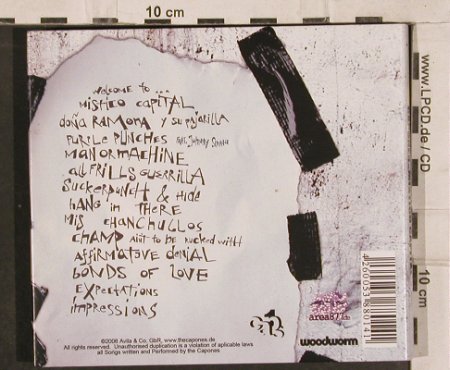 10 cm
welcome to ...
MISHCO CAPITAL
doña RAMONA y su pajarilla
PURPLE PUNCHES feat. Johnny
MAN OR MACHINE
all FRILLS GUERRILLA
SUCKERPUNCH & Hide
HANG in THERE
MIS CHANCHULLOS
CHAMP ain't to be fucked with
AFFIRMATIVE DENIAL
BONDS OF LOVE
EXPECTATIONS
IMPRESSIONS
©2006 Avila & Co. GbR, www.thecapones.de
All rights reserved. Unauthorised duplication is a violation of aplicable laws
all Songs written and Performed by the Capones
areas/
woodworm
4 260053 880141
www.LPCD.de / CD
10 cm